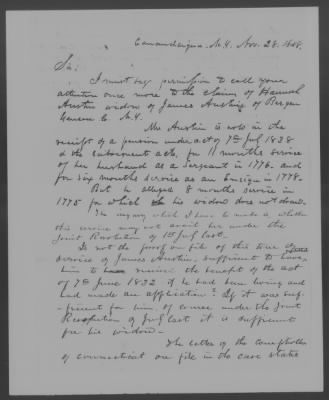 Canandaigua. N.Y. Nov. 28. 1848.
Sir:
I must beg permission to call your
attention once more to the claim of Hannah
Austin widow of James Austin of Bergen
Genesee Co N.Y.
Mrs Austin is now in the
receipt of a pension under act of 7th July 1838
& the subsequent acts, for 11 months service
of her husband as a sergeant in 1776. and
for six months service as an Ensign in 1778.
But he alleged 8 months service in
1775 for which his widow does not draw.
The inquiry which I have to make is whether
this service may not avail her under the
Joint Resolution of 1st July last.
Is not the proof on file of this nine mos
service of James Austin, sufficient to have
him to receive the benefit of the act
of 7th June 1832 if he had been living and
had made an application? If it was suf-
ficient for him, of course under the Joint
Resolution of July last it is sufficient
for his widow.
The letter of the Comptroller
of Connecticut on file in the case states